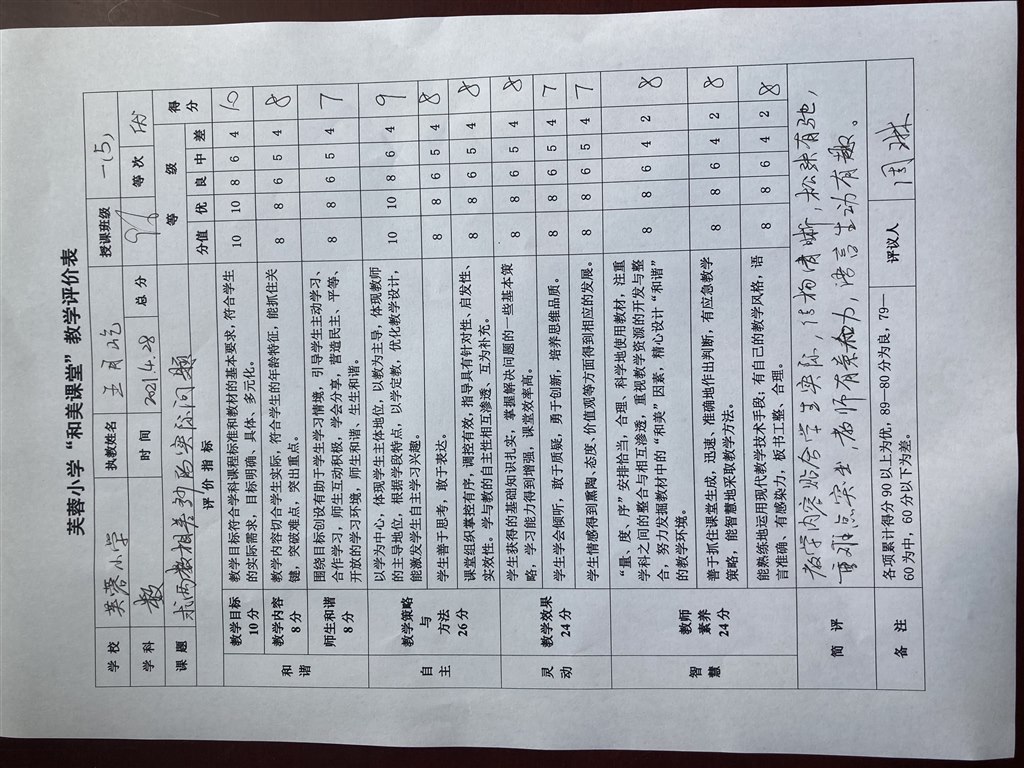 芙蓉小学“和美课堂”教学评价表
学校 芙蓉小学 执教姓名 授课班级 一(5)
学科 数 时间 2021.4.28 总分 等次 优
课题 求两数相差多少的实际问题
评价指标 等级 得分
分值 优 良 中 差
和谐
教学目标 10分
教学目标符合学科课程标准和教材的基本要求，符合学生
的实际需求，目标明确、具体、多元化。
10 10 8 6 4 10
教学内容 8分
教学内容切合学生实际，符合学生的年龄特征，能抓住关
键，突破难点、突出重点。
8 8 6 5 4 8
师生和谐 8分
围绕目标创设有助于学生学习情境，引导学生主动学习、
合作学习，师生互动积极，学会分享，营造民主、平等、
开放的学习环境，师生和谐、生生和谐。
8 8 6 5 4 7
自主
教学策略与方法 26分
以学为中心，体现学生主体地位，以教为主导，体现教师
的主导地位，根据学段特点，以学定教，优化教学设计，
能激发学生自主学习兴趣。
10 10 8 6 4 9
学生善于思考，敢于表达。
8 8 6 5 4 8
课堂组织掌控有序，调控有效，指导具有针对性、启发性、
实效性。学与教的自主性相互渗透、互为补充。
8 8 6 5 4 8
灵动
教学效果 24分
学生获得的基础知识扎实，掌握解决问题的一些基本策
略，学习能力得到增强，课堂效率高。
8 8 6 5 4 8
学生学会倾听，敢于质疑，勇于创新，培养思维品质。
8 8 6 5 4 7
学生情感得到熏陶，态度、价值观等方面得到相应的发展。
8 8 6 5 4 7
智慧
教师素养 24分
“量、度、序”安排恰当，合理、科学地使用教材，注重
学科之间的整合与相互渗透，重视教学资源的开发与整
合，努力发掘教材中的“和美”因素，精心设计“和谐”
的教学环境。
8 8 6 4 2 8
善于抓住课堂生成，迅速、准确地作出判断，有应急教学
策略，能智慧地采取教学方法。
8 8 6 4 2 8
能熟练地运用现代教学技术手段；有自己的教学风格，语
言准确、有感染力，板书工整、合理。
8 8 6 4 2 8
简评
教学内容贴合学生实际，结构清晰，松弛有驰，
重难点突出，老师有亲和力，语言生动有趣。
备注
各项累计得分90以上为优，89—80分为良，79—
60为中，60分以下为差。
评议人 周琳